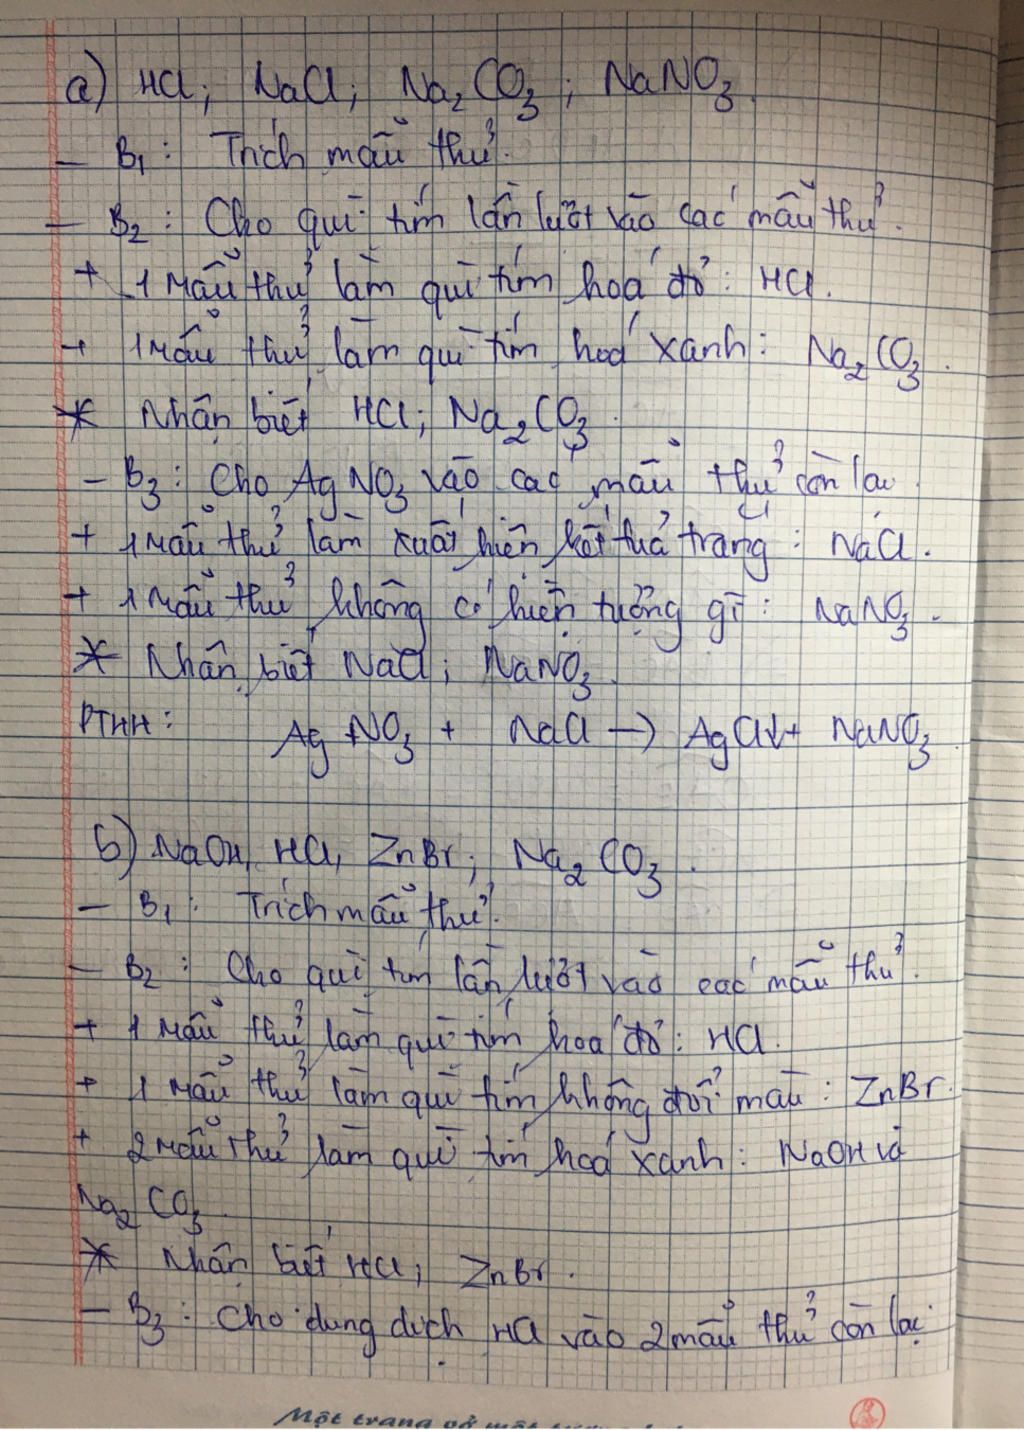 a) HCl; NaCl; Na2CO3; NaNO3.
- B1: Trích mẫu thử.
- B2: Cho quì tím lần lượt vào các mẫu thử.
+ 1 Mẫu thử làm quì tím hoá đỏ: HCl.
+ 1 Mẫu thử làm quì tím hoá xanh: Na2CO3.
* Nhận biết HCl; Na2CO3.
- B3: Cho AgNO3 vào các mẫu thử còn lại
+ 1 Mẫu thử làm xuất hiện kết tủa trắng: NaCl.
+ 1 Mẫu thử không có hiện tượng gì: NaNO3.
* Nhận biết NaCl; NaNO3.
PTHH: AgNO3 + NaCl → AgCl↓ + NaNO3.
b) NaOH, HCl, ZnBr; Na2CO3.
- B1: Trích mẫu thử.
- B2: Cho quì tím lần lượt vào các mẫu thử.
+ 1 Mẫu thử làm quì tím hoá đỏ: HCl.
+ 1 Mẫu thử làm quì tím không đổi màu: ZnBr.
+ 2 Mẫu thử làm quì tím hoá xanh: NaOH và
Na2CO3.
* Nhận biết HCl; ZnBr.
- B3: Cho dung dịch HCl vào 2 mẫu thử còn lại
Một trang vở